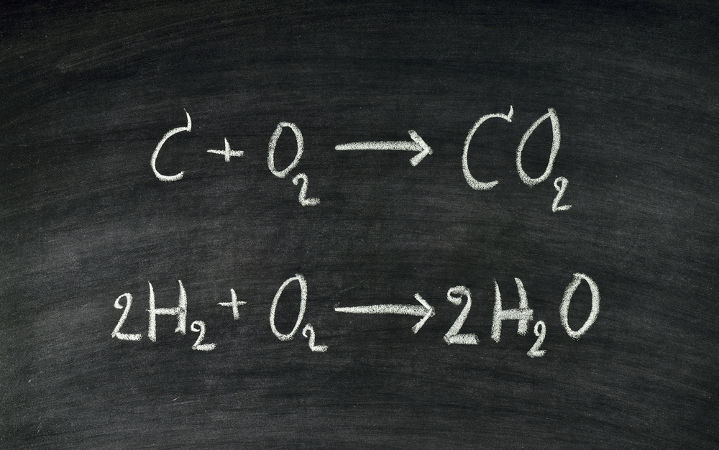 C + O₂ → CO₂
2H₂ + O₂ → 2H₂O